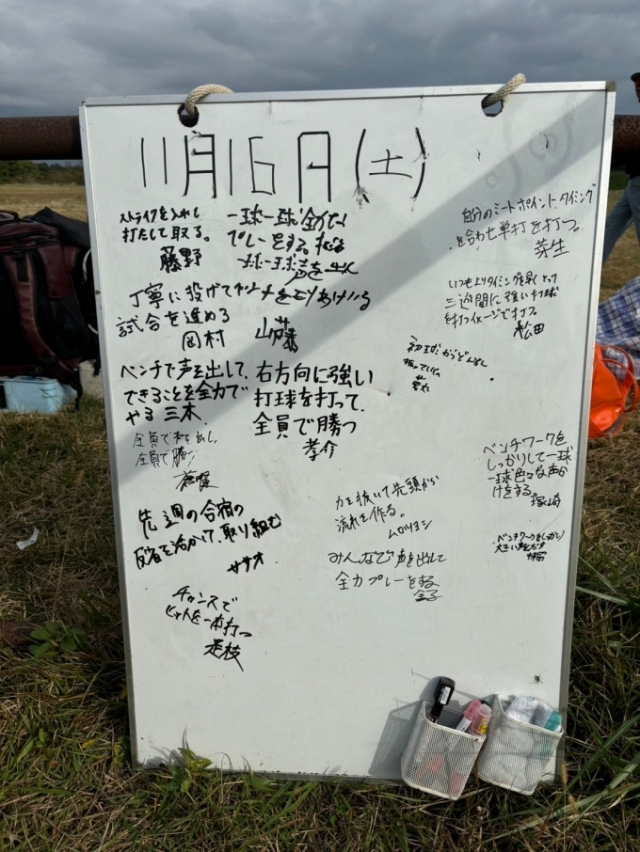 11月16日(土)
ストライクを入れて
打たして取る。
藤野
一球一球全力で
プレーをする。
一球一球声を出す
丁寧に投げて
試合を進める
岡村
ベンチで声を出して、
できることを全力で
やる 三木
右方向に強い
打球を打って、
全員で勝つ
孝介
全員で声出し、
全員で勝つ
先週の合宿の
反省を活かして、取り組む
ササオ
チャンスで
ヒットを一本打つ
是枝
自分のミートポイント、タイミング
を合わせ単打を打つ。
芽生
いつもよりタイミングを早くとって
三遊間に強い打球
を打つイメージで打つ。
松田
初球からどんどん
振っていく。
ベンチワークを
しっかりして一球
一球色々な声か
けをする。
塚崎
力を抜いて先頭から
流れを作る。
ムロツヨシ
みんなで声を出して
全力プレーをする
金子
ベンチワークをしっかりし
大きい声を出す